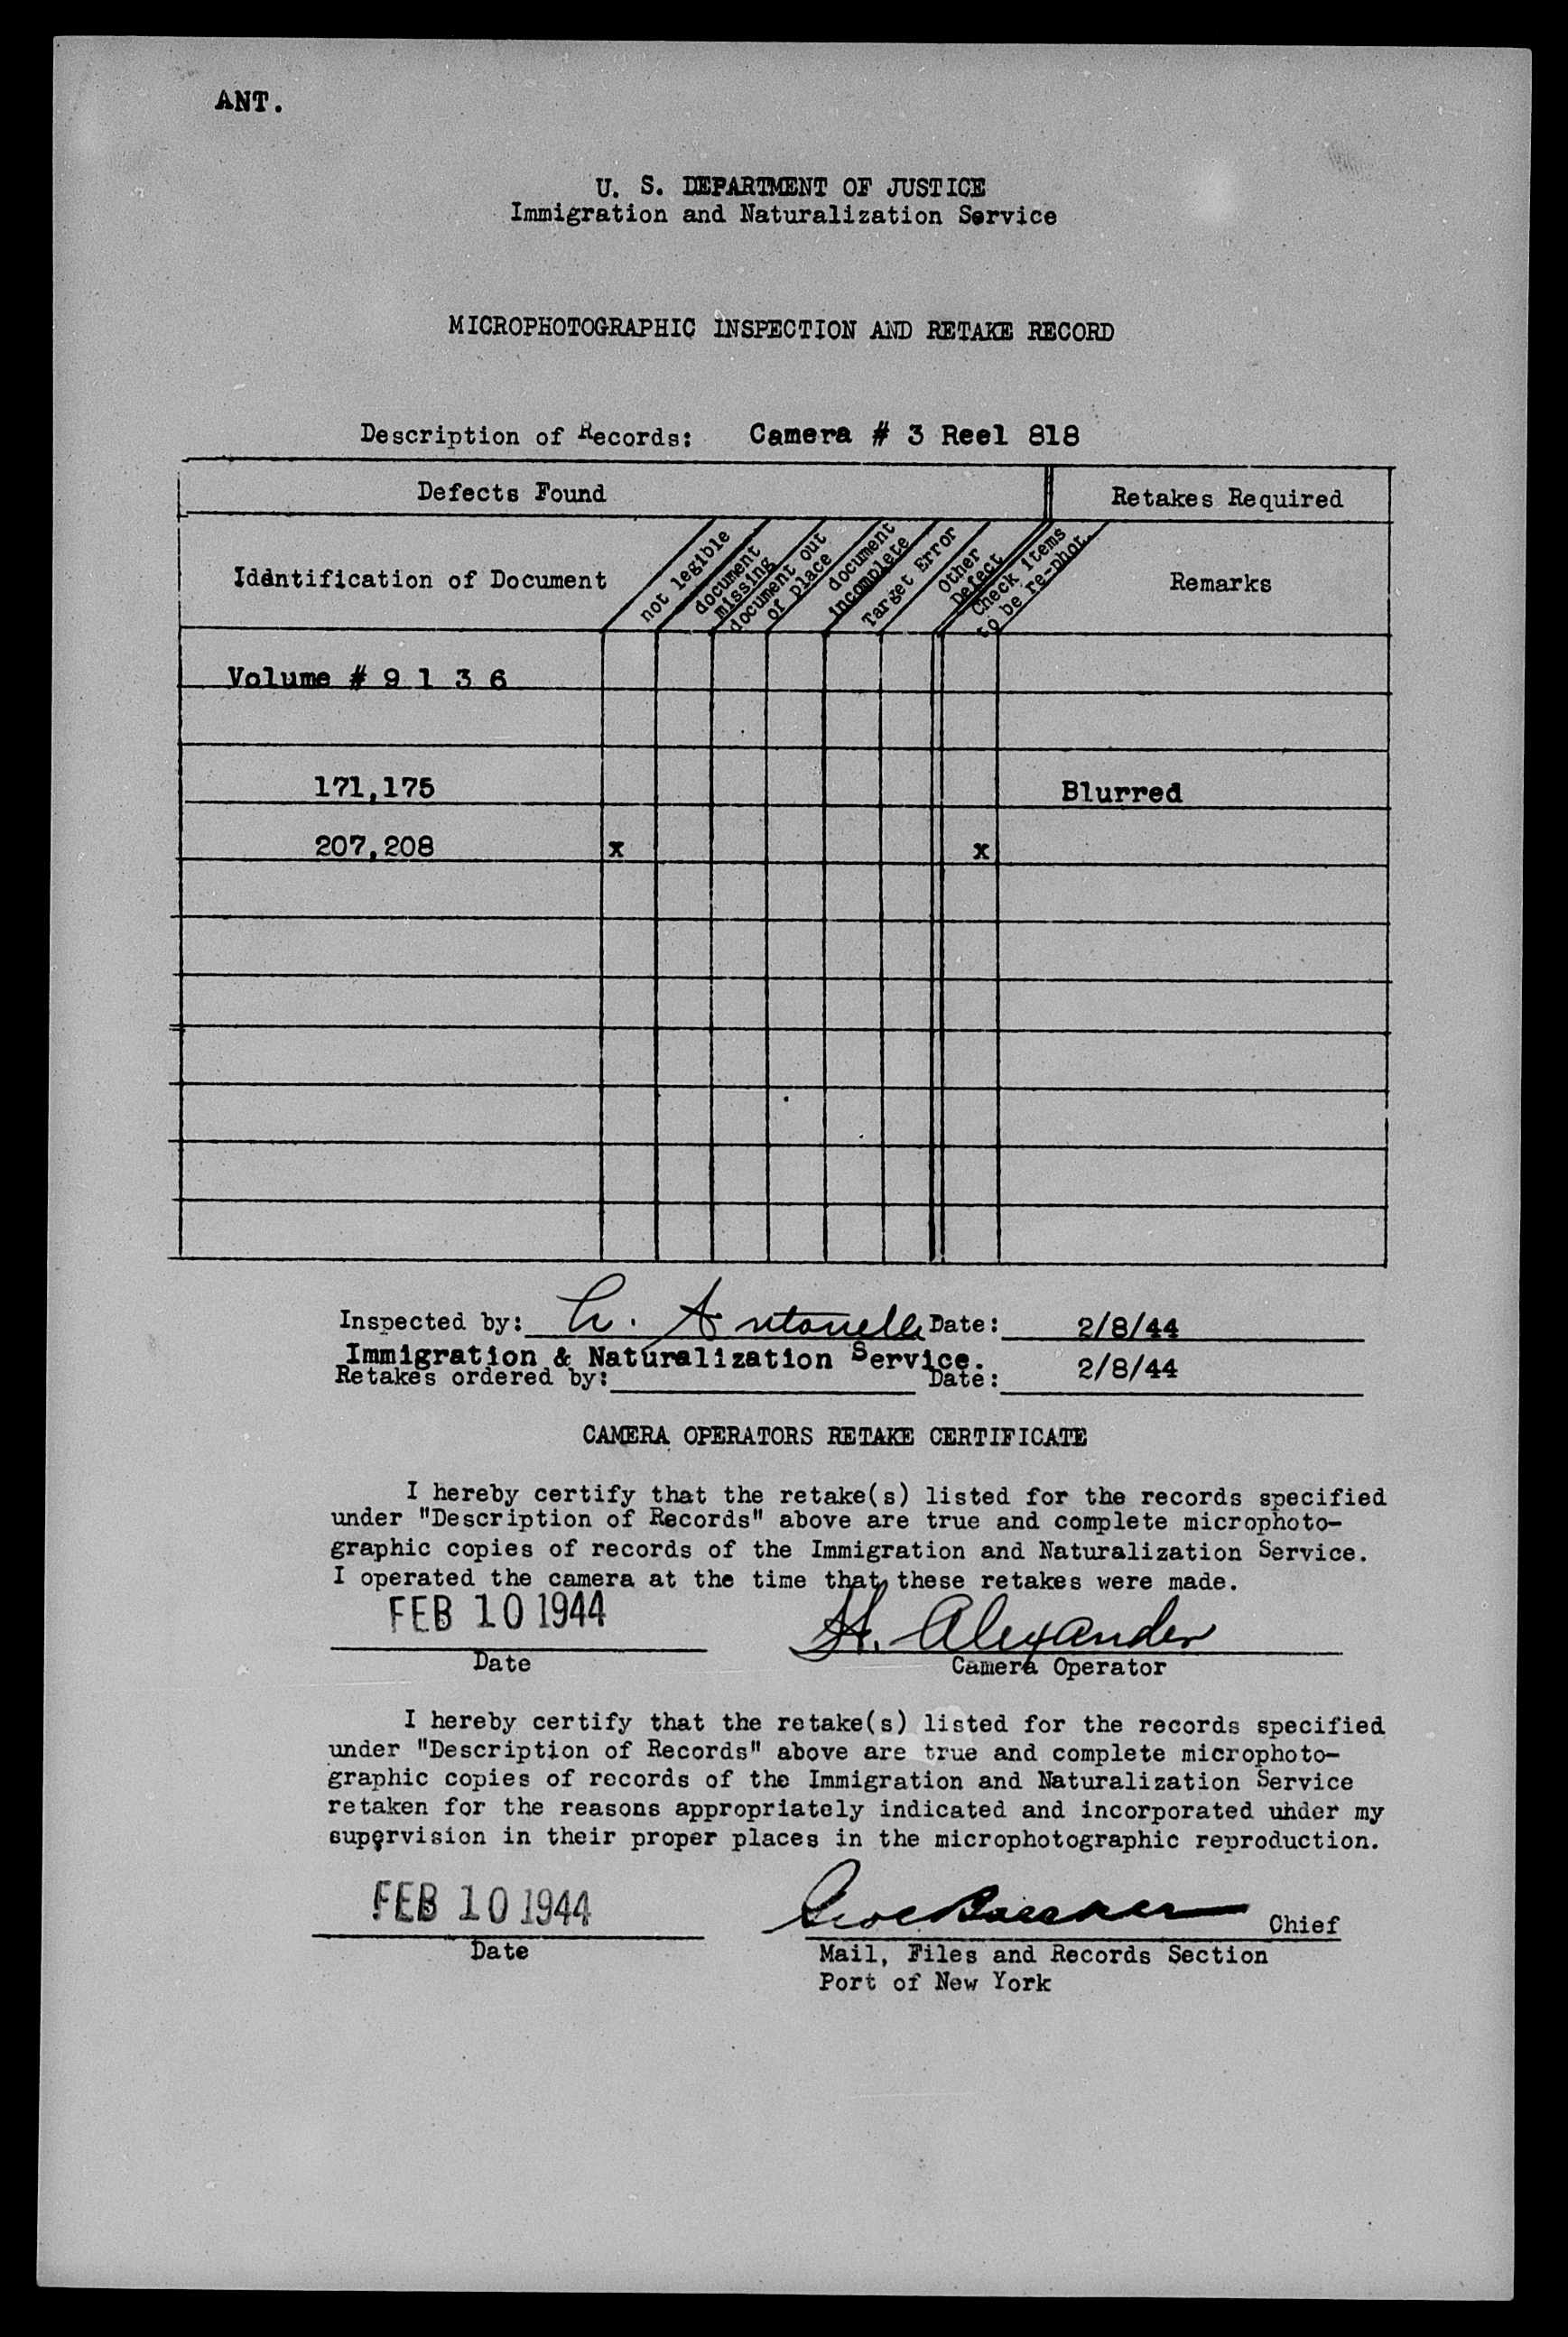 ANT.
U. S. DEPARTMENT OF JUSTICE
Immigration and Naturalization Service
MICROPHOTOGRAPHIC INSPECTION AND RETAKE RECORD
Description of Records: Camera # 3 Reel 818
Defects Found
Retakes Required
Identification of Document
not legible
document missing
document out of place
document incomplete
Target Error
Other Defect
Check items to be re-phot.
Remarks
Volume # 9 1 3 6
171,175 Blurred
207,208 x x
Inspected by: A. Antonelli Date: 2/8/44
Immigration & Naturalization Service.
Retakes ordered by: Date: 2/8/44
CAMERA OPERATORS RETAKE CERTIFICATE
I hereby certify that the retake(s) listed for the records specified
under "Description of Records" above are true and complete microphoto-
graphic copies of records of the Immigration and Naturalization Service.
I operated the camera at the time that these retakes were made.
FEB 10 1944 H. Alexander
Date Camera Operator
I hereby certify that the retake(s) listed for the records specified
under "Description of Records" above are true and complete microphoto-
graphic copies of records of the Immigration and Naturalization Service
retaken for the reasons appropriately indicated and incorporated under my
supervision in their proper places in the microphotographic reproduction.
FEB 10 1944 Chief
Date Mail, Files and Records Section
Port of New York